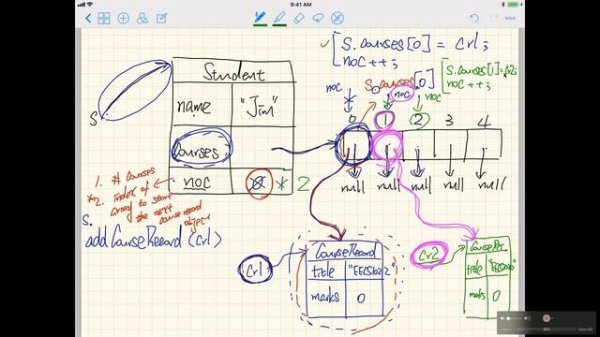 9:41 AM
✓ [ S.courses[0] = cr1;
noc ++;
[ S.courses[1] = cr2;
noc ++;
Student
name "Jim"
Courses
noc 2
S
noc
S.courses[0]
noc
noc
0 1 2 3 4
null null null null null
1. # courses
*2 index of
array to start
the next
course record
object
S.
addCourseRecord (cr1)
cr1
CourseRecord
title "EECS1022"
marks 0
cr2
title
marks 0